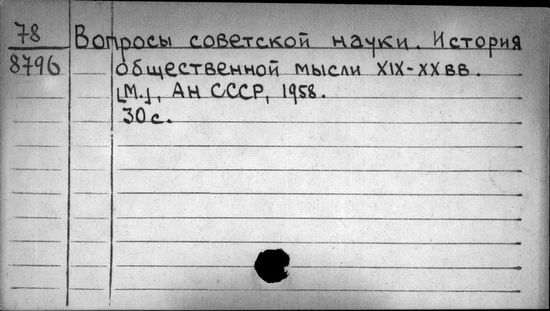 78 Вопросы советской науки. История
8796 общественной мысли XIX-XX вв.
[М.], АН СССР, 1958.
30 с.